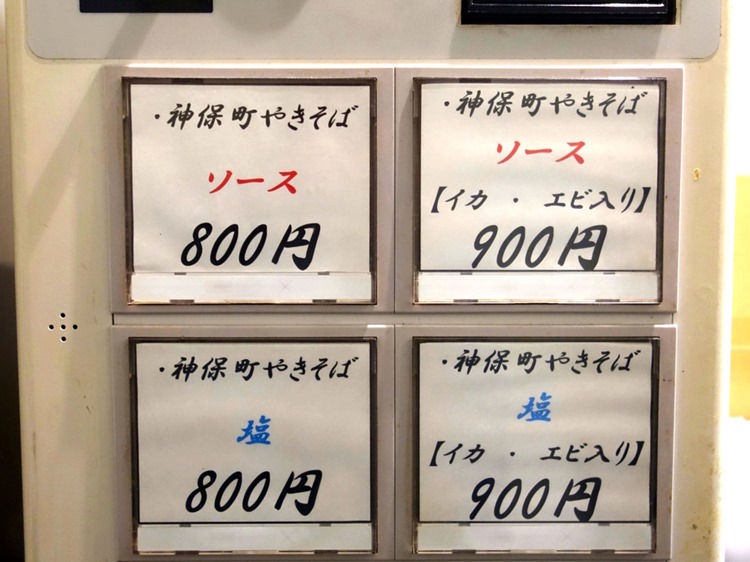 ・神保町やきそば
ソース
800円
・神保町やきそば
ソース
【イカ ・ エビ入り】
900円
・神保町やきそば
塩
800円
・神保町やきそば
塩
【イカ ・ エビ入り】
900円